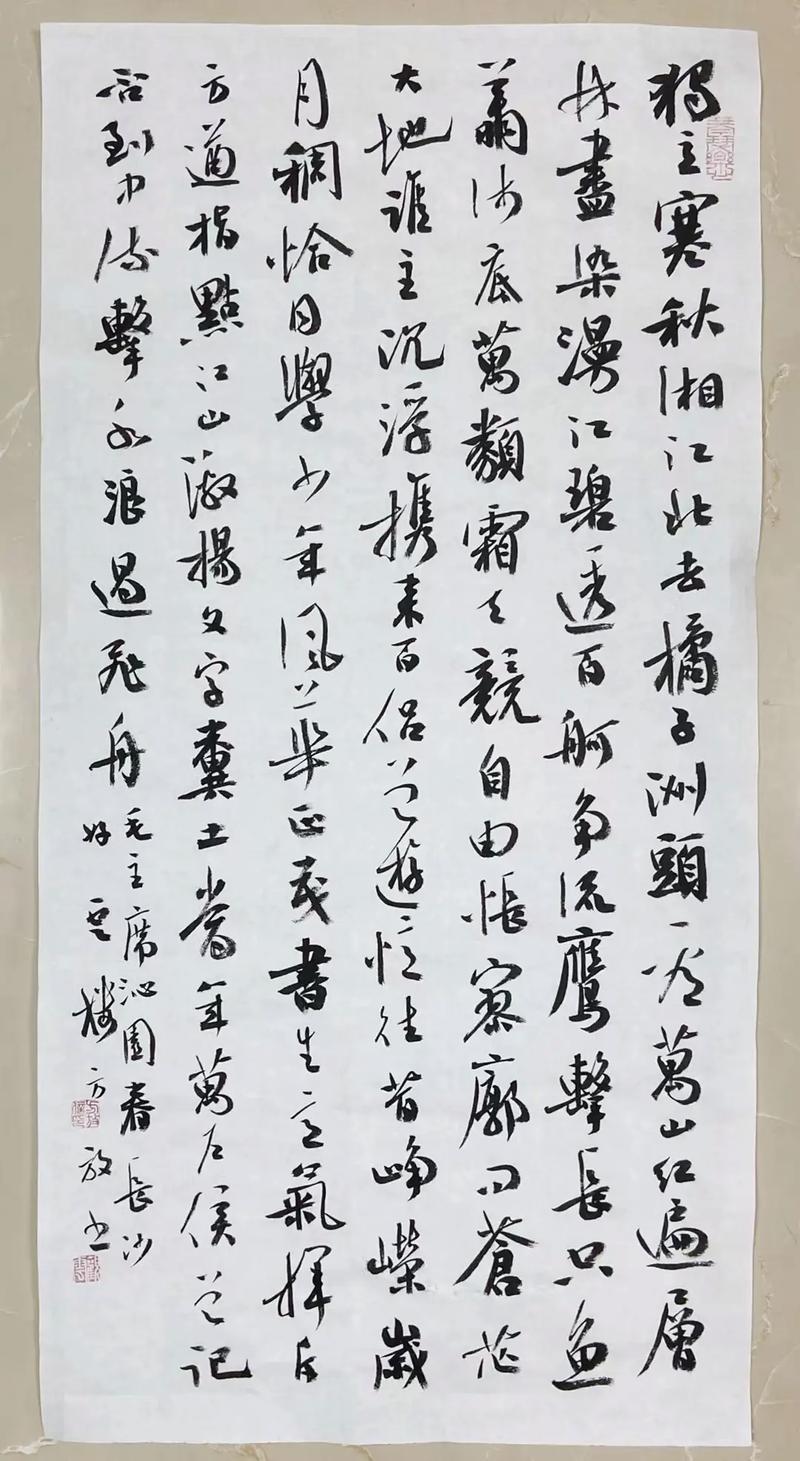 獨立寒秋湘江北去橘子洲頭一看萬山红遍層
林盡染漫江碧透百舸争流鷹擊長空魚
翔淺底萬類霜天競自由悵寥廓问蒼茫
大地誰主沉浮携来百侣曾遊憶往昔崢嶸歲
月稠恰同學少年風華正茂書生意氣揮斥
方遒指點江山激揚文字糞土當年萬户侯曾记
否到中流擊水浪遏飛舟
毛主席沁園春長沙
好雲樓方放书